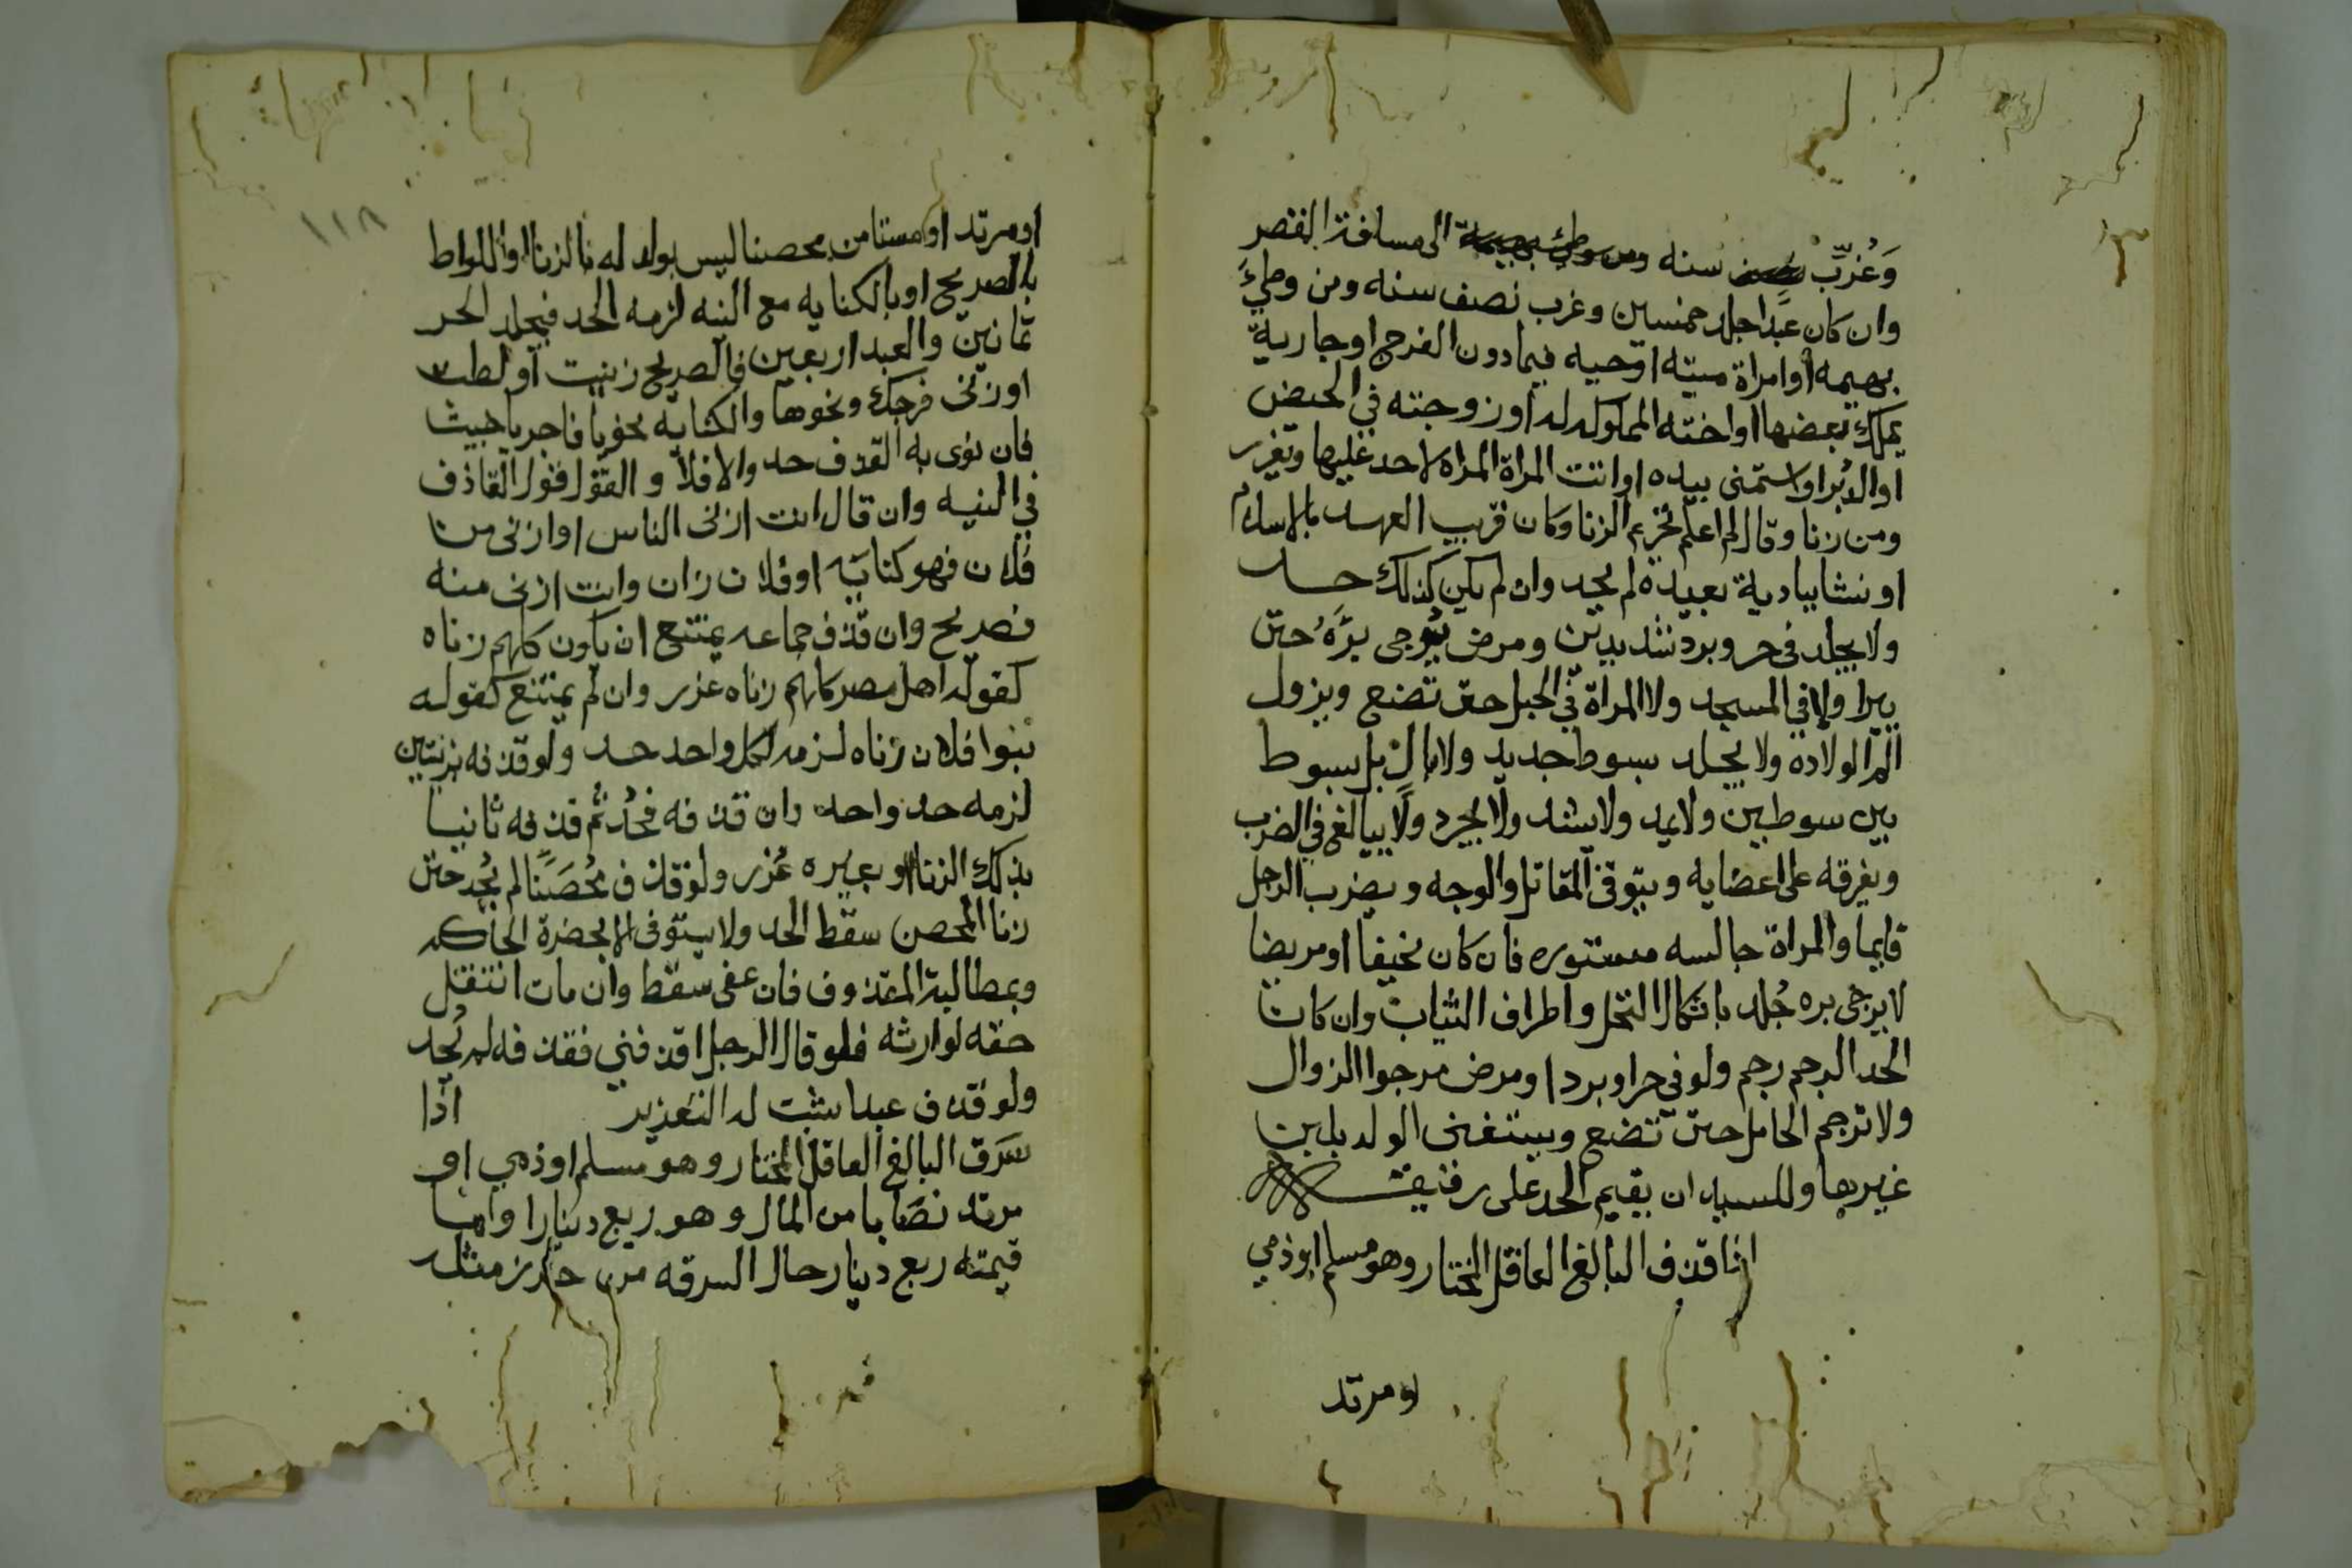 وَغُرِّبَ سنه الى مسافة القصر
وان كان عبدا جلد خمسين وغرب نصف سنه ومن وطئ
بهيمه او امراة ميته او حيه فيما دون الفرج او جارية
يملك بعضها او اخته المملوكه له او زوجته في الحيض
او الدبر او استمنى بيده او اتت المراة المراه لا حد عليها ويعزر
ومن زنا وقال لم اعلم تحريم الزنا وكان قريب العهد بالاسلام
او نشا ببادية بعيدة لم يحد وان لم يكن كذلك حد
ولا يجلد في حر وبرد شديدين ومرض يُرجى برَهُ حتى
يبرا ولا في المسجد ولا المراة في الحبل حتى تضع ويزول
الم الولاده ولا يجلد بسوط جديد ولا بال بل بسوط
بين سوطين ولا يمد ولا يشد ولا يجرد ولا يبالغ في الضرب
ويفرقه على اعضايه ويتوقى المقاتل والوجه ويضرب الرجل
قايما والمراة جالسه مستوره فان كان نحيفا او مريضا
لا يرجى بره جُلد باثكال النخل واطراف الثياب وان كان
الحد الرجم رجم ولو في حر او برد او مرض مرجوا الزوال
ولا ترجم الحامل حتى تضع ويستغنى الولد بلبن
غيرها وللسيد ان يقيم الحد على رقيقه
اذا قذف البالغ العاقل المختار وهو مسلم او ذمي
او مرتد
١١٨
او مرتد او مستامن محصنا ليس بولد له بالزنا او اللواط
بالصريح او بالكنايه مع النيه لزمه الحد فيجلد الحر
ثمانين والعبد اربعين فالصريح زنيت او لطت
او زنى فرجك ونحوها والكنايه نحو يا فاجر يا خبيث
فان نوى به القذف حد والا فلا والقول قول القاذف
في النيه وان قال انت ازنى الناس او ازنى من
فلان فهو كنايه او فلان زان وانت ازنى منه
فصريح وان قذف جماعه يمتنع ان يكون كلهم زناه
كقوله اهل مصر كلهم زناه عزر وان لم يمتنع كقوله
بنوا فلان زناه لزمه لكل واحد حد ولو قذفه بزنتين
لزمه حد واحد وان قذفه فحُدّ ثم قذفه ثانيا
بذلك الزنا او بغيره عُزر ولو قذف مُحْصَنًا لم يُحد حتى
زنا المحصن سقط الحد ولا يستوفى الا بحضرة الحاكم
وبمطالبة المقذوف فان عفى سقط وان مات انتقل
حقه لوارثه فلو قال الرجل اقذفني فقذفه لم يُحد
ولو قذف عبدا ثبت له التعزير اذا
سَرَق البالغ العاقل المختار وهو مسلم او ذمي او
مرتد نصَابا من المال وهو ربع دينارا وما
قيمته ربع دينار حال السرقه من حرز مثله